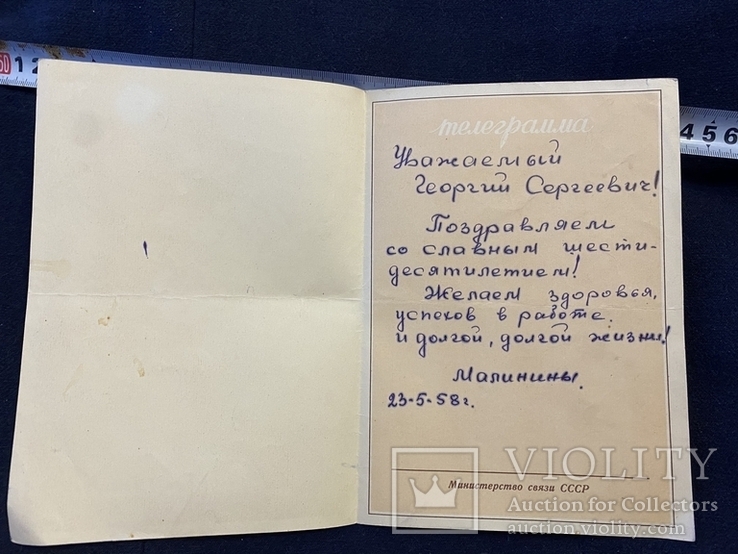 телеграмма
Уважаемый
Георгий Сергеевич!
Поздравляем
со славным шести-
десятилетием!
Желаем здоровья,
успехов в работе.
и долгой, долгой жизни!
Малинины.
23-5-58г.
Министерство связи СССР
50 1 2
4 5 6
VIOLITY
Auction for Collectors
auction.violity.com